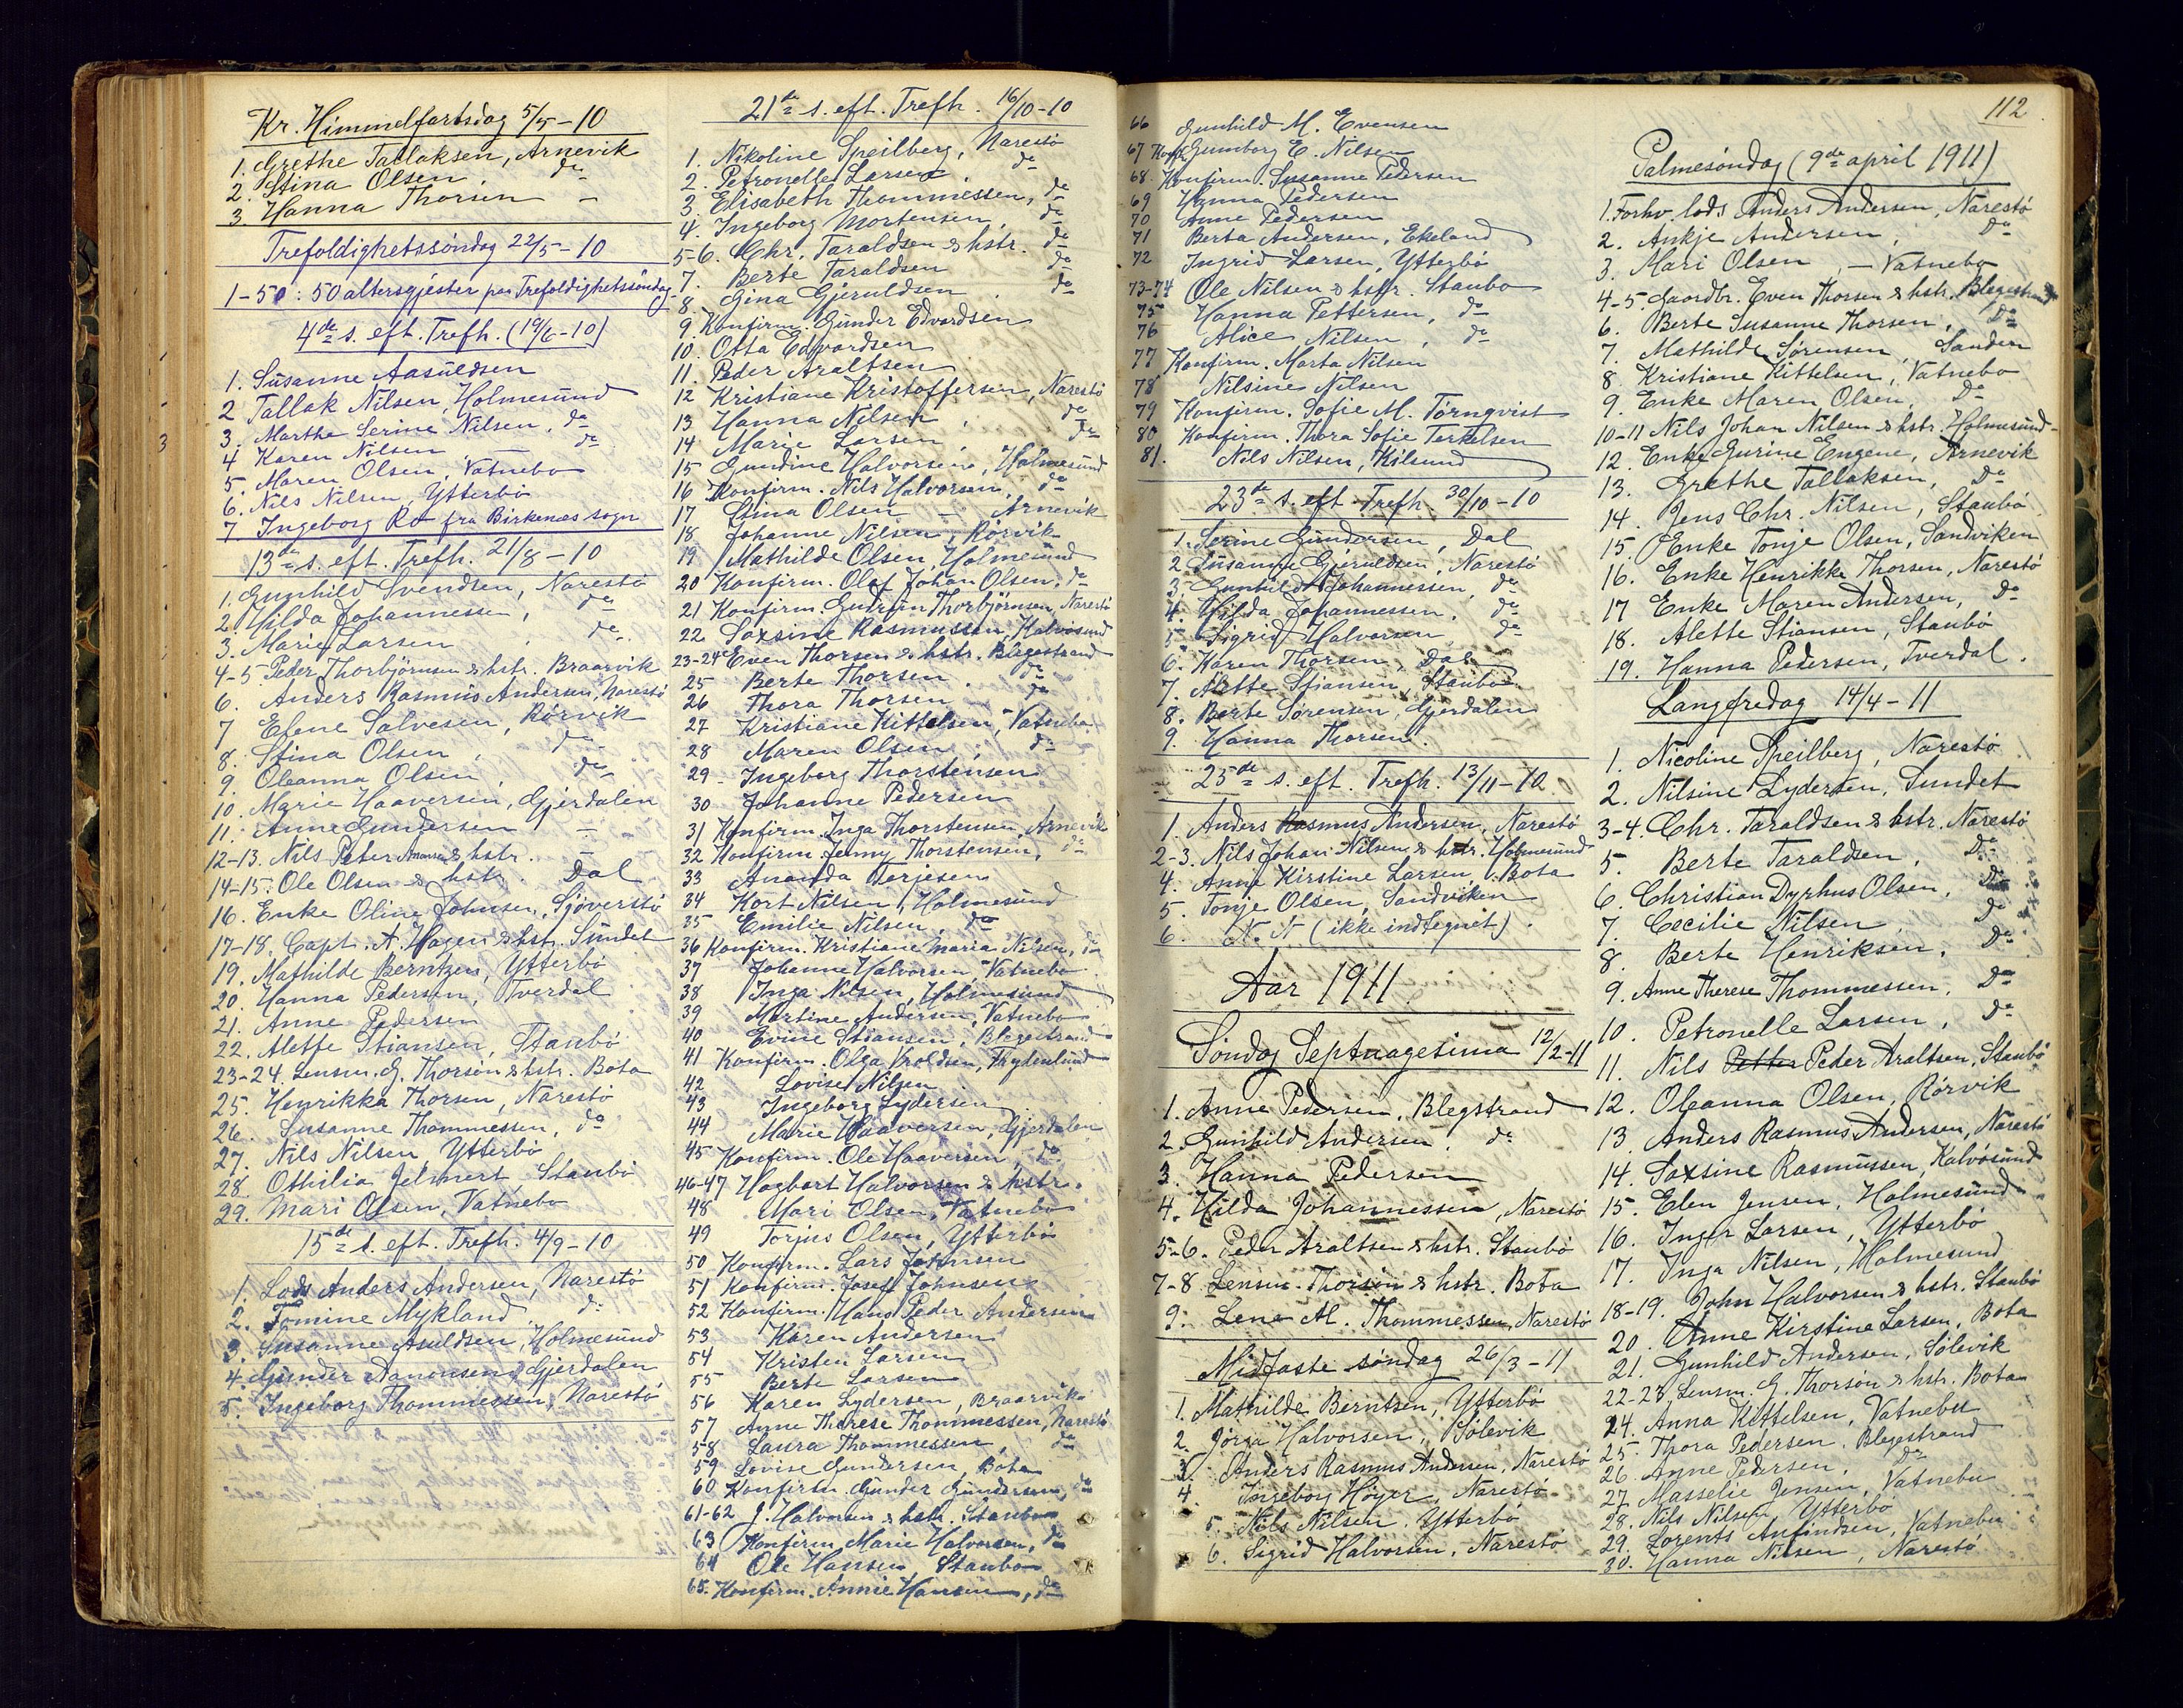 Kr. Himmelfartsdag 5/5-10
1. Grethe Tallaksen, Arnevik
2. Stina Olsen, do
3. Hanna Thorsen —
Trefoldighetssöndag 22/5-10
1-50: 50 altersgjester paa Trefoldighetssöndag
4de s. eft. Trefh. (19/6-10)
1. Susanne Aasuldsen
2 Tallak Nilsen, Holmesund
3. Marthe Serine Nilsen, do
4 Karen Nilsen — do
5. Maren Olsen, Vatnebo
6. Nils Nilsen, Ytterbö
7 Ingeborg Ro fra Birkenæs sogn
13de s. eft. Trefh. 21/8-10
1. Gunhild Svendsen, Narestö
2. Hilda Johannessen, do
3. Marie Larsen, do
4-5 Peder Thorbjörnsen & hstr. Braarvik
6. Anders Rasmus Andersen, Narestö
7 Elene Salvesen, Rörvik
8. Stina Olsen, do
9. Oleanna Olsen, do
10. Marie Haaversen, Gjerdalen
11. Anne Gundersen —
12-13. Nils Peter & hstr. —
14-15. Ole Olsen & hstr. Dal
16. Enke Oline Johnsen, Sjöverstö
17-18. Capt. A. Hagen & hstr. Sundet
19. Mathilde Berntzen, Ytterbö
20. Hanna Pedersen, Tverdal
21. Anne Pedersen
22. Alette Stiansen, Staubö
23-24. Lensm. G. Thorsön & hstr. Bota
25. Henrikka Thorsen, Narestö
26. Susanne Thommessen, do
27. Nils Nilsen, Ytterbö
28. Othilia Jelmert Staubö
29. Mari Olsen, Vatnebo
15de s. eft. Trefh. 4/9-10
1. Lods Anders Andersen, Narestö
2. Tomine Mykland do
3. Susanne Asuldsen, Holmesund
4. Gunder Aanonsen, Gjerdalen
5. Ingeborg Thommessen, Narestö
21de s. eft. Trefh. 16/10-10
1. Nikoline Speilberg, Narestö
2. Petronelle Larsen, do
3. Elisabeth Thommessen, do
4. Ingeborg Mortensen, do
5-6. Chr. Taraldsen & hstr. do
7. Berte Taraldsen do
8. Gina Gjeruldsen, do
9. Konfirm. Gunder Edvardsen
10. Otta Edvardsen
11. Peder Araltsen
12 Kristiane Kristoffersen, Narestö
13 Hanna Nilsen, do
14 Marie Larsen, do
15 Gundine Halvorsen, Holmesund
16 Konfirm. Nils Halvorsen, do
17 Stina Olsen — Arnevik
18 Johanne Nilsen, Rörvik
19 Mathilde Olsen, Holmesund
20 Konfirm. Olaf Johan Olsen, do
21 Konfirm. Gudrun Thorbjörnsen, Narestö
22. Saxsine Rasmussen, Kalvösund
23-24 Even Thorsen & hstr. Blegestrand
25 Berte Thorsen, do
26 Thora Thorsen do
27 Kristiane Kittelsen, Vatnebo
28 Maren Olsen do
29 Ingeborg Thorstensen
30 Johanne Pedersen
31 Konfirm. Inga Thorstensen, Arnevik
32 Konfirm. Jenny Thorstensen, do
33 Ananda Terjesen
34 Kort Nilsen, Holmesund
35 Emilie Nilsen, do
36 Konfirm. Kristiane Maria Nilsen, do
37 Johanne Halvorsen, Vatnebo
38 Inga Nilsen, Holmesund
39 Martine Andersen, Vatnebo
40 Evine Stiansen, Blegestrand
41 Konfirm. Olga
42 Lovise Nilsen
43 Ingeborg Lydersen
44 Marie Haaversen, Gjerdalen
45 Konfirm. Ole Haaversen, do
46-47 Hagbart Halvorsen & hstr.
48 Mari Olsen, Vatnebo
49 Torjus Olsen, Ytterbö
50 Konfirm. Lars Johnsen
51 Konfirm. Josef Johnsen
52 Konfirm. Hans Peder Andersen
53 Karen Andersen
54 Kristen Larsen
55 Berte Larsen
56 Karen Lydersen, Braarvik
57 Anne Therese Thommessen, Narestö
58 Laura Thommessen, do
59 Lovise Gundersen, Bota
60 Konfirm. Gunder Gundersen, do
61-62 J. Halvorsen & hstr. Staubö
63 Konfirm. Marie Halvorsen, do
64 Ole Hansen Staubö
65. Konfirm. Annie Hansen, do
66 Gunhild M. Evensen
67 Konf. Gunborg E. Nilsen
68. Konfirm. Susanne Pedersen
69 Hanna Pedersen
70 Anne Pedersen
71 Berta Andersen, Ekeland
72 Ingrid Larsen, Ytterbö
73-74 Ole Nilsen & hstr. Staubo
75 Hanna Pettersen, do
76 Alice Nilsen, do
77 Konfirm. Marta Nilsen
78 Nilsine Nilsen
79 Konfirm. Sofie M. Törnqvist
80 Konfirm. Thora Sofie Terkelsen
81. Nils Nilsen, Kilsund
23de s. eft. Trefh. 30/10-10
1. Serine Gundersen, Dal
2 Susanne Gjeruldsen, Narestö
3. Gunhild Johannessen, do
4. Hilda Johannessen, do
5 Sigrid Halvorsen do
6. Karen Thorsen, Dal
7. Alette Stiansen, Staubö
8. Berte Sörensen, Gjerdalen
9. Hanna Thorsen.
25de s. eft. Trefh. 13/11-10
1. Anders Rasmus Andersen, Narestö
2-3. Nils Johan Nilsen & hstr. Holmesund
4. Anne Kirstine Larsen, Bota
5. Tonje Olsen, Sandviken
6. N. N. (ikke indtegnet).
Aar 1911.
Söndag Septuagesima 12/2-11
1. Anne Pedersen, Blegstrand
2. Gunhild Andersen, do
3. Hanna Pedersen
4. Hilda Johannessen, Narestö
5-6. Peder Araltsen & hstr. Staubö
7-8 Lensm. Thorsön & hstr. Bota
9. Lena M. Thommessen, Narestö
Midfaste söndag 26/3-11
1. Mathilde Berntsen, Ytterbö
2. Jörga Halvorsen, Sölevik
3. Anders Rasmus Andersen, Narestö
4. Ingeborg Höyer, Narestö
5. Nils Nilsen, Ytterbö
6. Sigrid Halvorsen, Narestö
112
Palmesöndag (9de april 1911)
1. Forhv. lods Anders Andersen, Narestö
2. Ankje Andersen, do
3. Mari Olsen, — Vatnebo
4-5. Gaardbr. Even Thorsen & hstr. Blegestrand
6. Berte Susanne Thorsen, Do
7. Mathilde Sørensen, Sanden
8. Kristiane Kittelsen, Vatnebo
9. Enke Maren Olsen, Do
10-11 Nils Johan Nilsen & hstr. Holmesund
12. Enke Gurine Engene, Arnevik
13. Grethe Tallaksen, Do
14. Jens Chr. Nilsen, Staubö
15. Enke Tonje Olsen, Sandviken
16. Enke Henrikke Thorsen, Narestö
17 Enke Maren Andersen, Do
18. Alette Stiansen, Staubö
19. Hanna Pedersen, Tverdal.
Langfredag 14/4-11
1. Nicoline Speilberg, Narestö
2. Nilsine Lydersen, Sundet
3-4. Chr. Taraldsen & hstr. Narestö
5. Berte Taraldsen, Do
6. Christian Dyrhus Olsen, Do
7. Cecilie Nilsen, Do
8. Berte Henriksen, Do
9. Anne Therese Thommessen, Do
10. Petronelle Larsen, Do
11. Nils Petter Peder Araltsen, Staubö
12. Oleanna Olsen, Rörvik
13 Anders Rasmus Andersen, Narestö
14. Saxsine Rasmussen, Kalvösund
15. Elen Jensen, Holmesund
16. Inger Larsen, Ytterbö
17. Inga Nilsen, Holmesund
18-19. John Halvorsen & hstr. Staubö
20. Anne Kirstine Larsen, Bota
21. Gunhild Andersen, Sölevik
22-23 Lensm. G. Thorsön & hstr. Bota
24. Anna Kittelsen, Vatnebu
25. Thora Pedersen, Blegestrand
26. Anne Pedersen, Do
27. Masselie Jensen, Vatnebu
28. Nils Nilsen, Ytterbö
29. Lorents Anfindsen, Vatnebu
30. Hanna Nilsen, Narestö